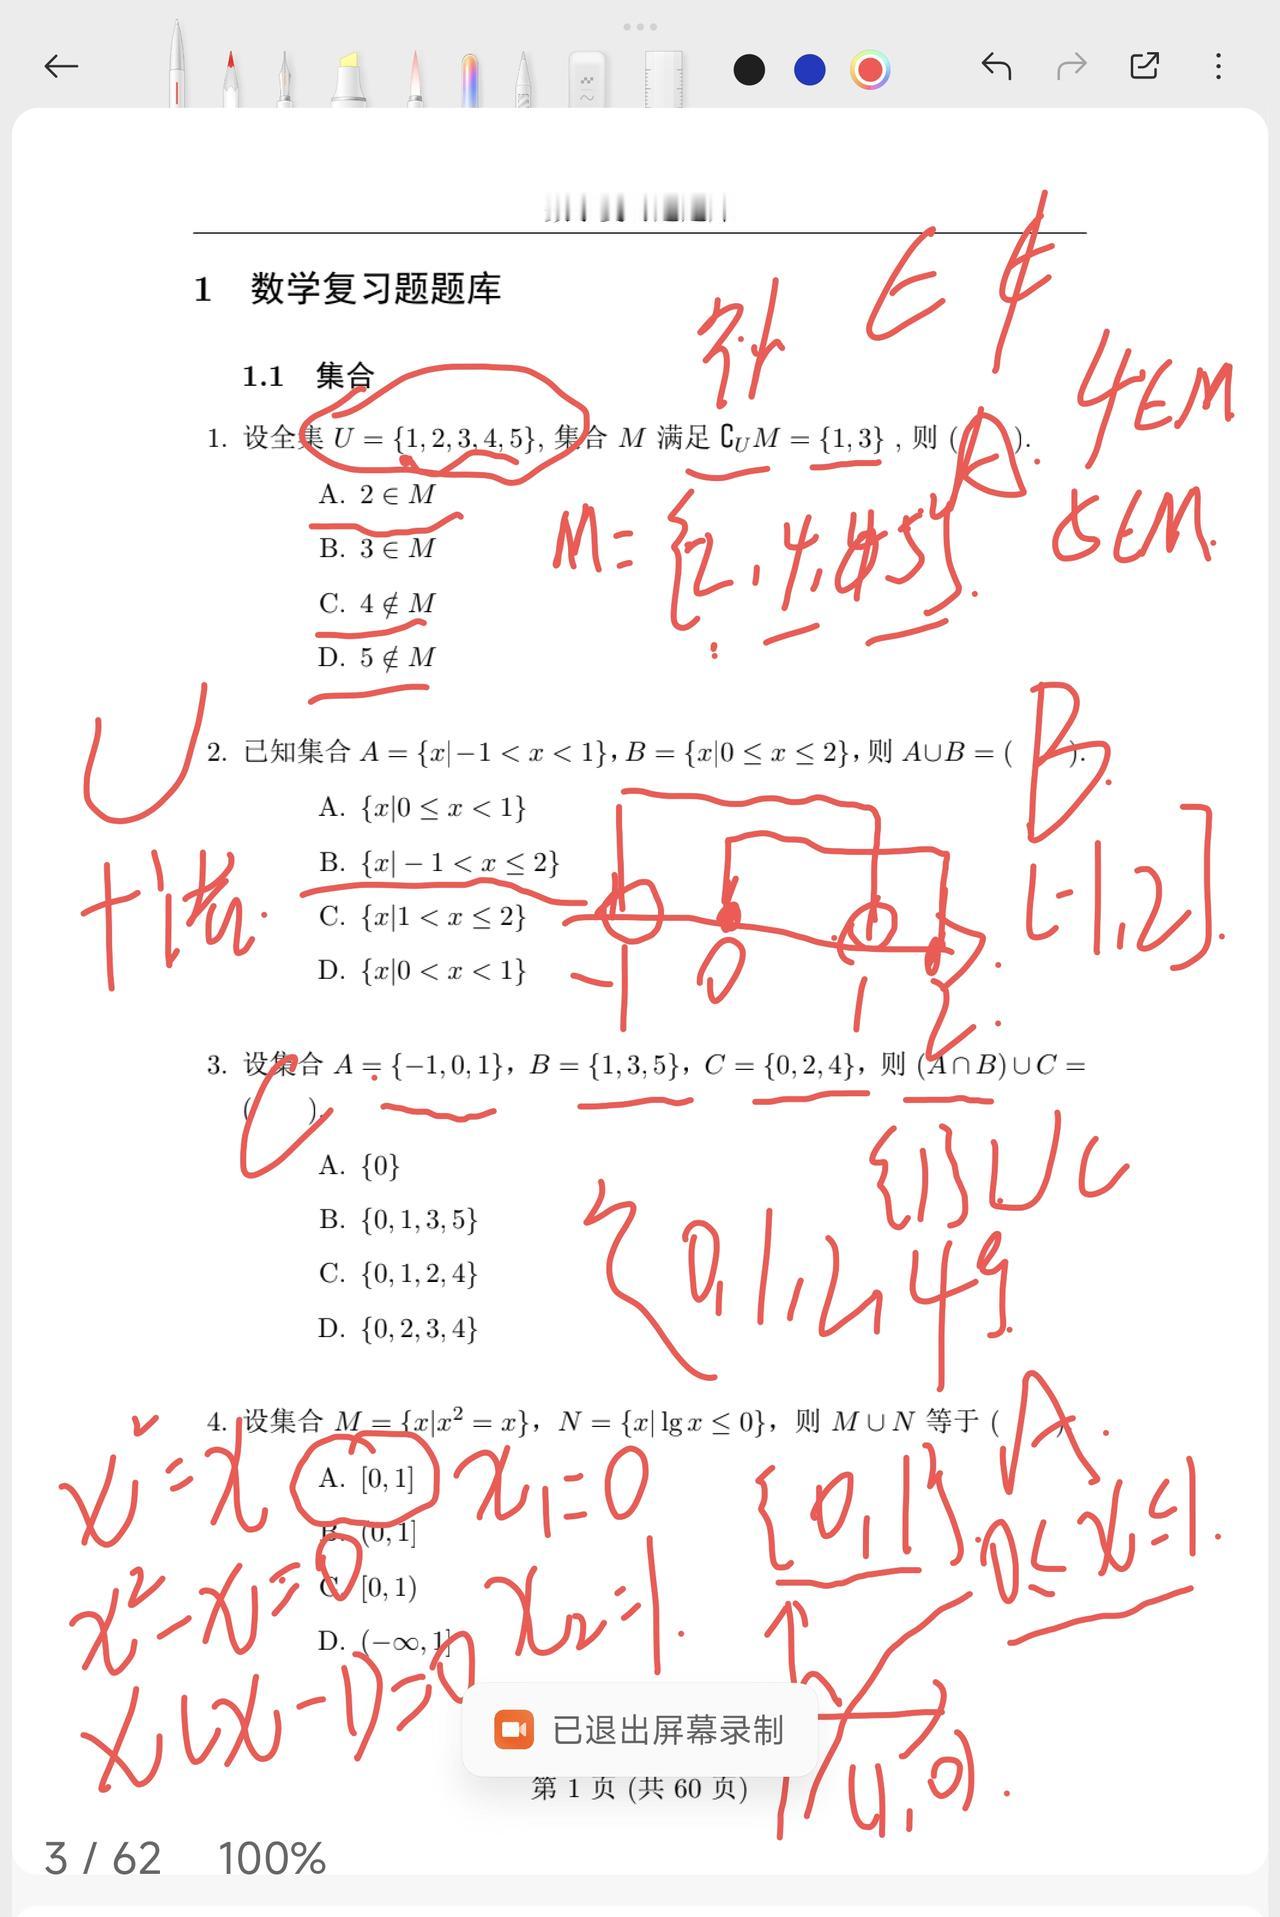 1 数学复习题题库
补 ∈ ∉
1.1 集合
4∈M
1. 设全集 U = {1, 2, 3, 4, 5}, 集合 M 满足 ∁_U M = {1, 3} , 则 ( A ).
A. 2 ∈ M
M = {2, 4, 5}.
5∈M.
B. 3 ∈ M
C. 4 ∉ M
D. 5 ∉ M
U
2. 已知集合 A = {x|−1 < x < 1}, B = {x|0 ≤ x ≤ 2}, 则 A∪B = ( B ).
A. {x|0 ≤ x < 1}
B. {x| − 1 < x ≤ 2}
(-1,2].
C. {x|1 < x ≤ 2}
D. {x|0 < x < 1}
-1 0 1 2
3. 设集合 A = {−1, 0, 1}, B = {1, 3, 5}, C = {0, 2, 4}, 则 (A ∩ B) ∪ C =
( C ).
A. {0}
{1}∪C
B. {0, 1, 3, 5}
{0,1,2,4}.
C. {0, 1, 2, 4}
D. {0, 2, 3, 4}
4. 设集合 M = {x|x² = x}, N = {x| lg x ≤ 0}, 则 M ∪ N 等于 ( A ).
x²=x
A. [0, 1]
x₁=0
{0,1}.
0≤x≤1.
B. (0, 1]
x²-x=0
C. [0, 1)
x₂=1.
D. (−∞, 1]
x(x-1)=0
已退出屏幕录制
(1,0).
第 1 页 (共 60 页)
3 / 62 100%